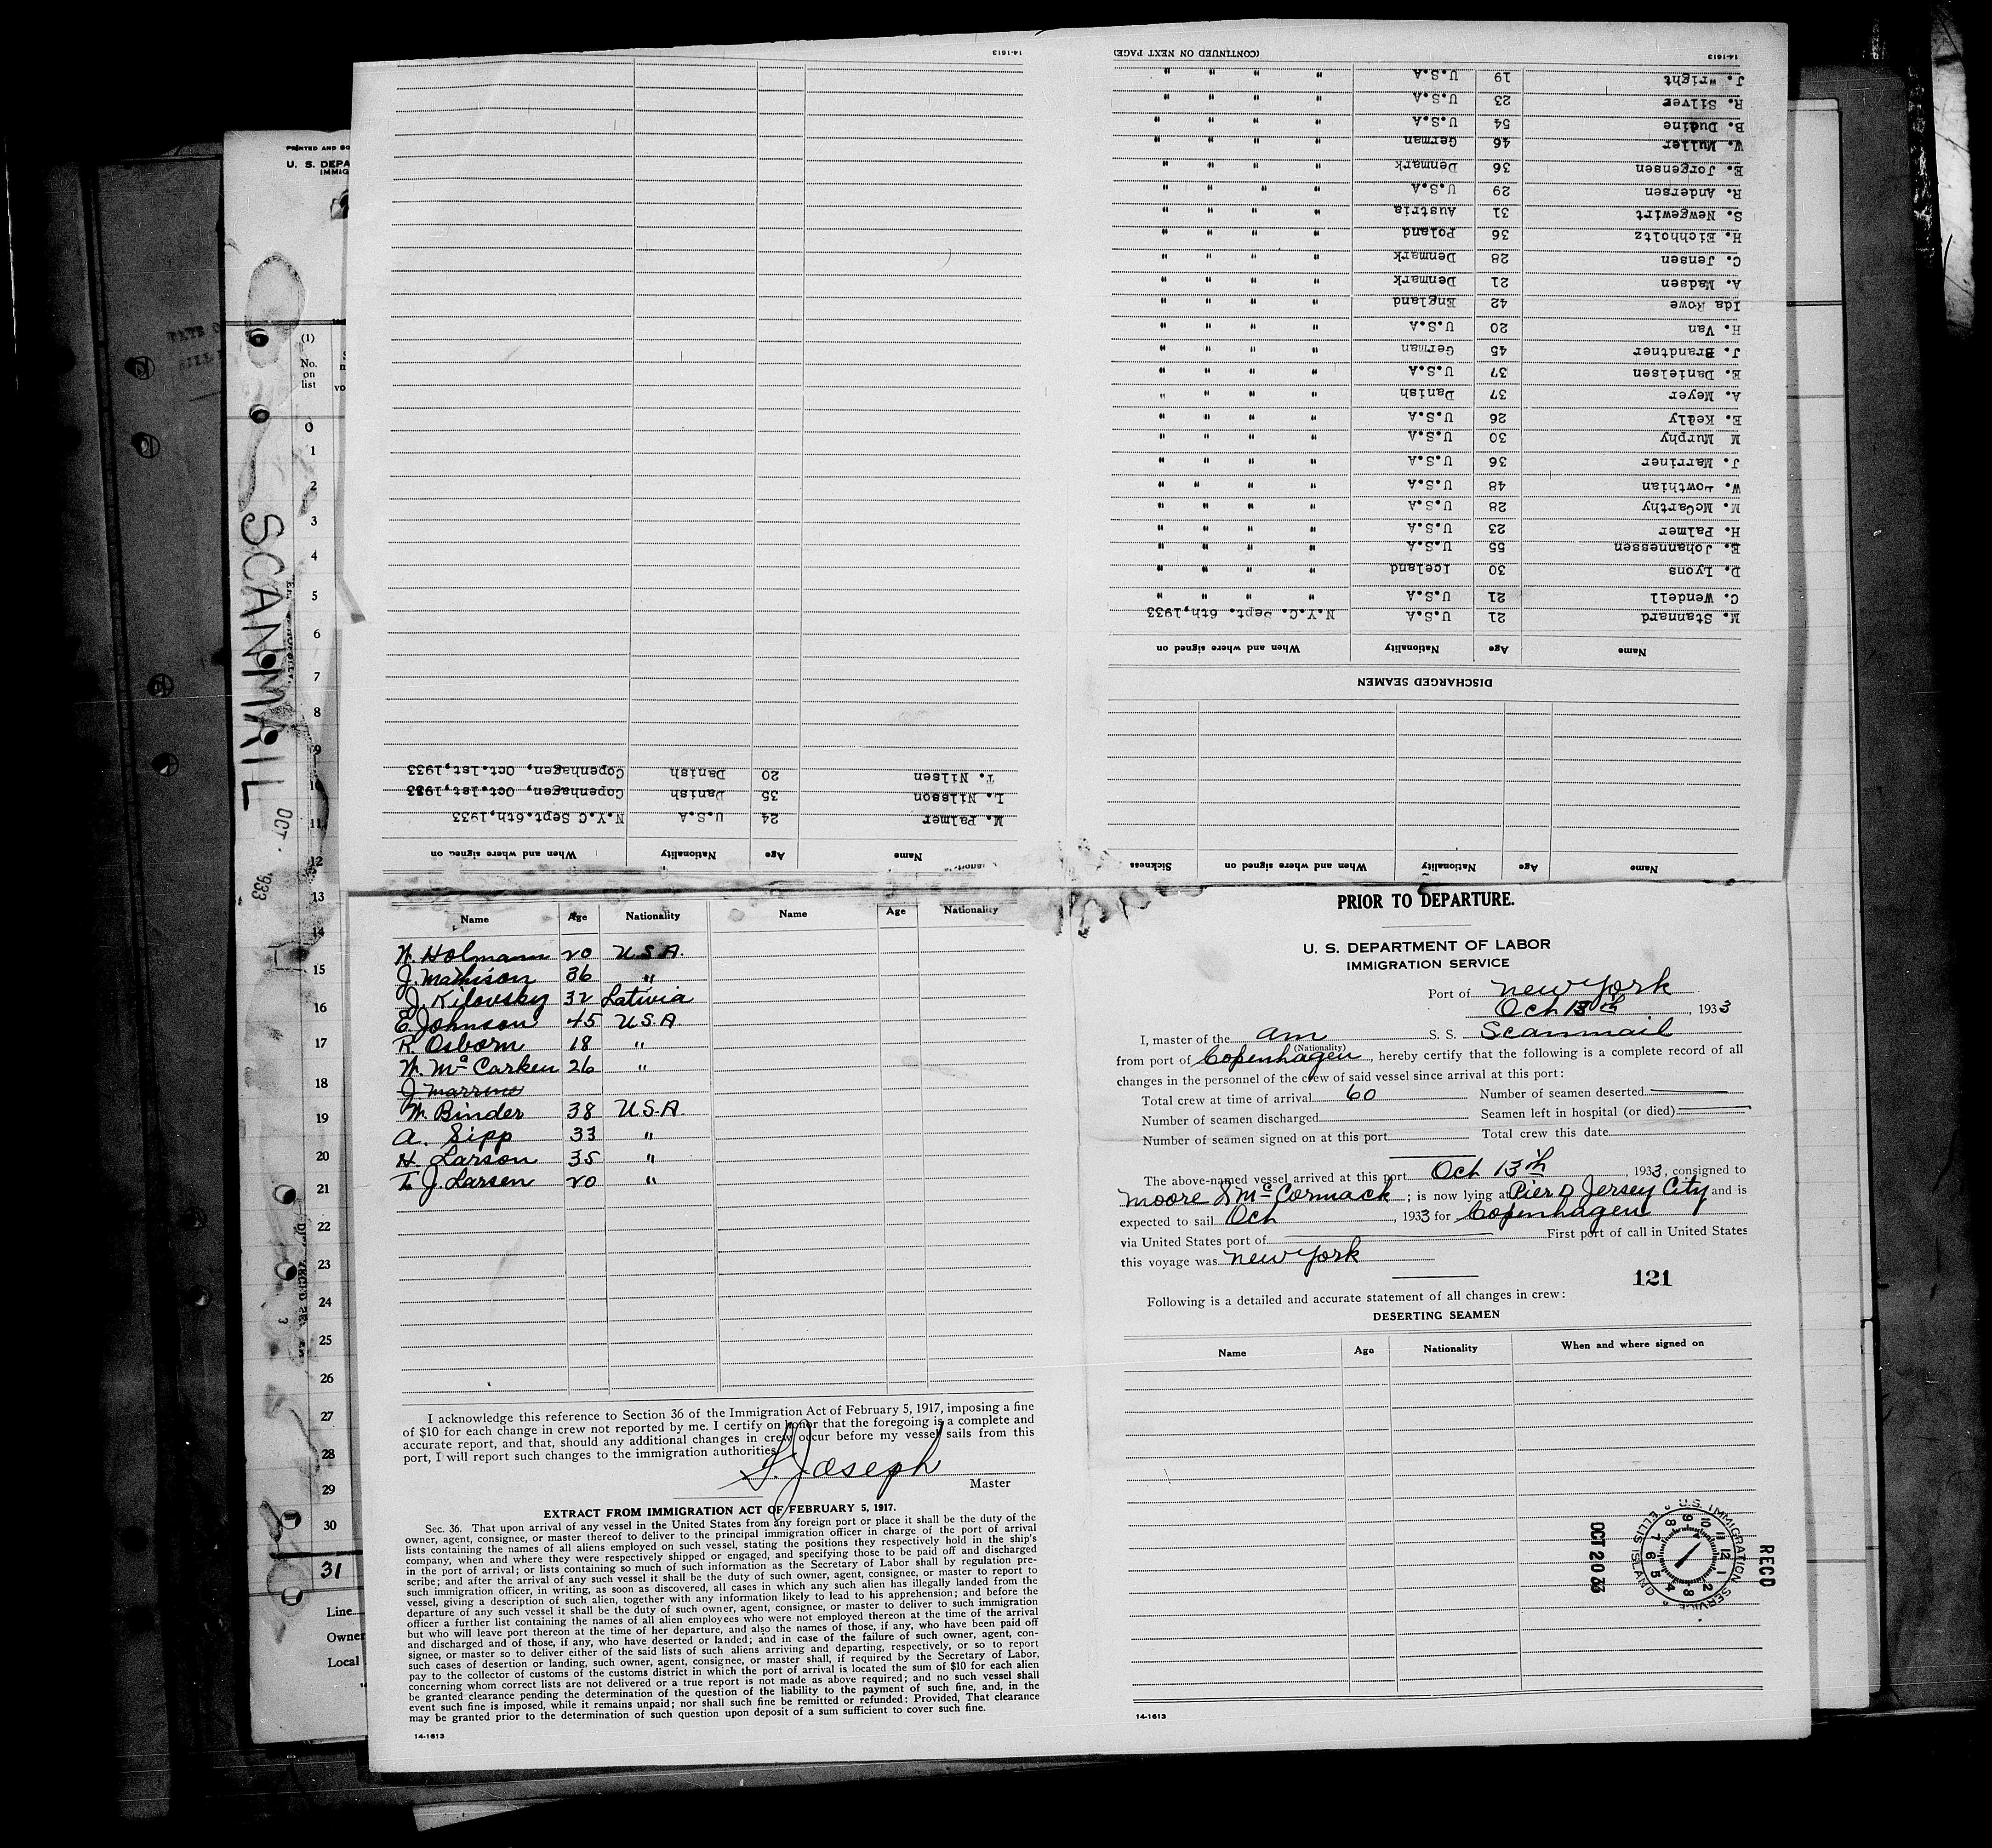 PRIOR TO DEPARTURE.
U. S. DEPARTMENT OF LABOR
IMMIGRATION SERVICE
Port of New York
Oct 13th, 1933
I, master of the Am S. S. Scanmail
(Nationality)
from port of Copenhagen, hereby certify that the following is a complete record of all
changes in the personnel of the crew of said vessel since arrival at this port:
Total crew at time of arrival 60 Number of seamen deserted
Number of seamen discharged Seamen left in hospital (or died)
Number of seamen signed on at this port Total crew this date
The above-named vessel arrived at this port Oct 13th, 1933, consigned to
Moore & McCormack; is now lying at Pier D Jersey City and is
expected to sail Oct, 1933 for Copenhagen
via United States port of First port of call in United States
this voyage was New York
121
Following is a detailed and accurate statement of all changes in crew:
DESERTING SEAMEN
Name Age Nationality When and where signed on
RECD
U.S. IMMIGRATION SERVICE ELLIS ISLAND
OCT 20 33
14-1613
Name Age Nationality When and where signed on Sickness
DISCHARGED SEAMEN
Name Age Nationality When and where signed on
M. Stannard 21 U.S.A N.Y.C. Sept. 6th,1933
C. Wendell 21 U.S.A " " " "
D. Lyons 30 Iceland " " " "
E. Johannessen 55 U.S.A " " " "
H. Palmer 23 U.S.A " " " "
M. McCarthy 28 U.S.A " " " "
W. Lowthian 48 U.S.A " " " "
J. Marriner 36 U.S.A " " " "
M Murphy 30 U.S.A " " " "
E. Keally 26 U.S.A " " " "
A. Meyer 37 Danish " " " "
E. Danielsen 37 U.S.A " " " "
J. Brandtner 45 German " " " "
H. Van 20 U.S.A " " " "
Ida Rowe 42 England " " " "
A. Madsen 21 Denmark " " " "
C. Jensen 28 Denmark " " " "
H. Eichholtz 36 Poland " " " "
S. Newgewirt 31 Austria " " " "
R. Andersen 29 U.S.A " " " "
E. Jorgensen 36 Denmark " " " "
W. Muller 46 German " " " "
B. Dudine 54 U.S.A " " " "
R. Silver 23 U.S.A " " " "
J. Wright 19 U.S.A " " " "
14-1613 (CONTINUED ON NEXT PAGE)
Name Age Nationality When and where signed on
M. Palmer 24 U.S.A N.Y.C Sept.6th,1933
L. Nilsson 35 Danish Copenhagen, Oct.1st,1933
T. Nilsen 20 Danish Copenhagen, Oct.1st,1933
14-1613
Name Age Nationality Name Age Nationality
W. Holmann 20 U.S.A.
J. Mathison 36 "
J. Kilovsky 32 Latvia
E. Johnson 45 U.S.A
R. Osborn 18 "
W. McCarken 26 "
W. Binder 38 U.S.A
A. Sipp 33 "
H. Larson 35 "
T. J. Larsen 20 "
I acknowledge this reference to Section 36 of the Immigration Act of February 5, 1917, imposing a fine
of $10 for each change in crew not reported by me. I certify on honor that the foregoing is a complete and
accurate report, and that, should any additional changes in crew occur before my vessel sails from this
port, I will report such changes to the immigration authorities.
S. Joseph
Master
EXTRACT FROM IMMIGRATION ACT OF FEBRUARY 5, 1917.
Sec. 36. That upon arrival of any vessel in the United States from any foreign port or place it shall be the duty of the
owner, agent, consignee, or master thereof to deliver to the principal immigration officer in charge of the port of arrival
lists containing the names of all aliens employed on such vessel, stating the positions they respectively hold in the ship's
company, when and where they were respectively shipped or engaged, and specifying those to be paid off and discharged
in the port of arrival; or lists containing so much of such information as the Secretary of Labor shall by regulation pre-
scribe; and after the arrival of any such vessel it shall be the duty of such owner, agent, consignee, or master to report to
such immigration officer, in writing, as soon as discovered, all cases in which any such alien has illegally landed from the
vessel, giving a description of such alien, together with any information likely to lead to his apprehension; and before the
departure of any such vessel it shall be the duty of such owner, agent, consignee, or master to deliver to such immigration
officer a further list containing the names of all alien employees who were not employed thereon at the time of the arrival
but who will leave port thereon at the time of her departure, and also the names of those, if any, who have been paid off
and discharged and of those, if any, who have deserted or landed; and in case of the failure of such owner, agent, con-
signee, or master so to deliver either of the said lists of such aliens arriving and departing, respectively, or so to report
such cases of desertion or landing, such owner, agent, consignee, or master shall, if required by the Secretary of Labor,
pay to the collector of customs of the customs district in which the port of arrival is located the sum of $10 for each alien
concerning whom correct lists are not delivered or a true report is not made as above required; and no such vessel shall
be granted clearance pending the determination of the question of the liability to the payment of such fine, and, in the
event such fine is imposed, while it remains unpaid; nor shall such fine be remitted or refunded: Provided, That clearance
may be granted prior to the determination of such question upon deposit of a sum sufficient to cover such fine.
14-1613
PRINTED AND SO
U. S. DEPA
IMMIG
(1)
No.
on
list
SCANMAIL
OCT. 1933
0
1
2
3
4
5
6
7
8
9
10
11
12
13
14
15
16
17
18
19
20
21
22
23
24
25
26
27
28
29
30
31
Line
Owner
Local